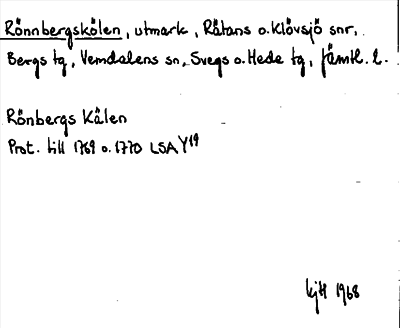 Rönnbergskölen, utmark, Råtans o. Klövsjö snr,
Bergs tg, Vemdalens sn, Svegs o. Hede tg, Jämtl. l.
Rönbergs Kålen
Prot. till 1769 o. 1770 LSA Y19
KjH 1968